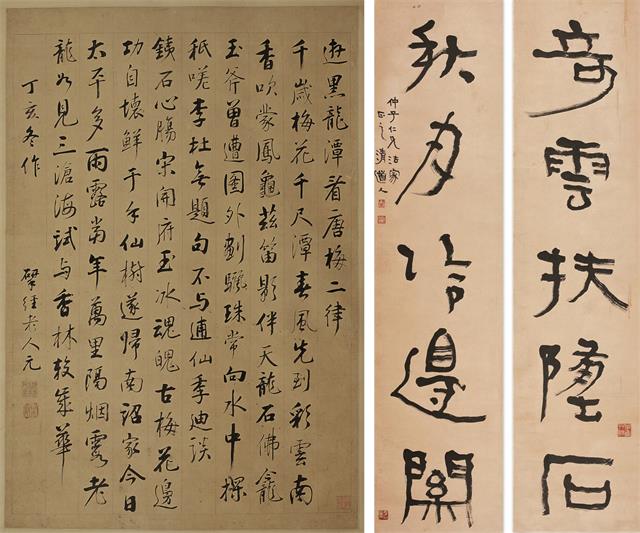 遊黑龍潭看唐梅二律
千歲梅花千尺潭春風先到彩雲南
香吹蒙鳳龜茲笛影伴天龍石佛龕
玉斧曾遭圖外劃驪珠常向水中探
祇嗟李杜無題句不與逋仙季迪談
鐵石心腸宋開府玉冰魂魄古梅花邊
功自壞鮮于手仙樹遂歸南詔家今日
太平多雨露當年萬里隔烟霞老
龍如見三滄海試與香林較歲華
丁亥冬作
揅經老人元
奇雲扶墮石
秋月冷邊關
仲子仁兄法家
正之 清道人